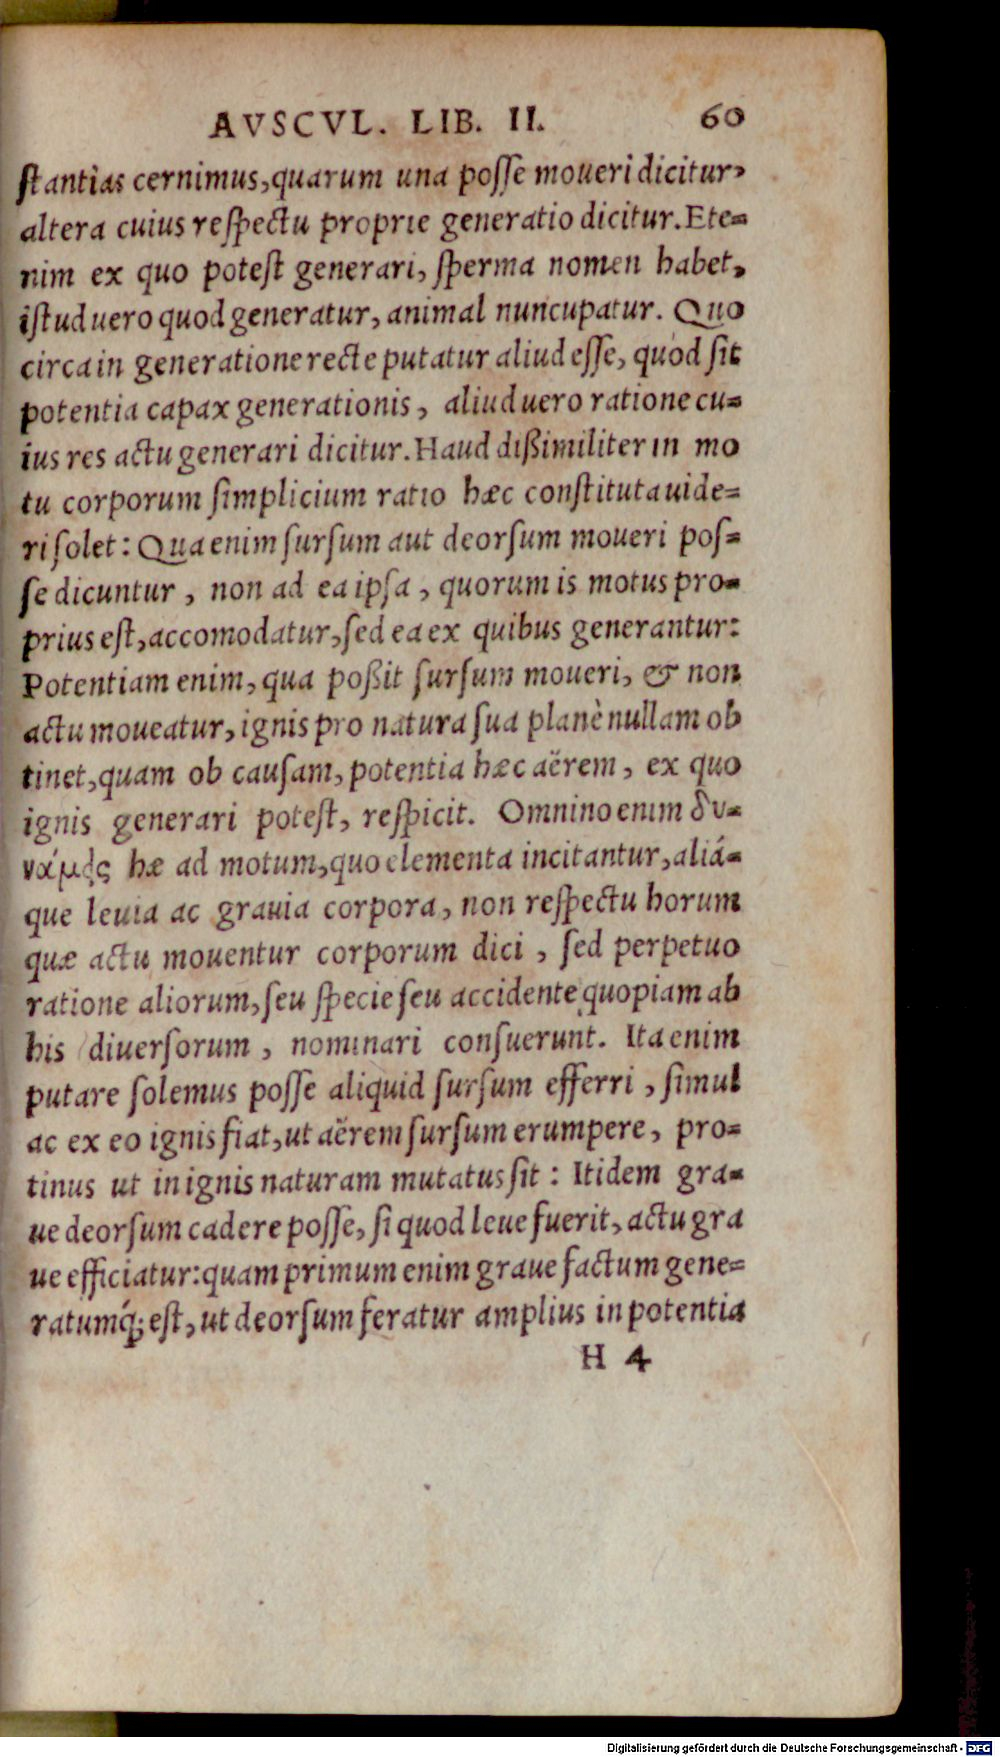 AVSCVL. LIB. II. 60
stantias cernimus, quarum una posse moueri dicitur,
altera cuius respectu proprie generatio dicitur. Ete-
nim ex quo potest generari, sperma nomen habet,
istud uero quod generatur, animal nuncupatur. Quo
circa in generatione recte putatur aliud esse, quòd sit
potentia capax generationis, aliud uero ratione cu-
ius res actu generari dicitur. Haud dißimiliter in mo
tu corporum simplicium ratio hæc constituta uide-
ri solet: Qua enim sursum aut deorsum moueri pos-
se dicuntur, non ad ea ipsa, quorum is motus pro-
prius est, accomodatur, sed ea ex quibus generantur:
Potentiam enim, qua poßit sursum moueri, & non
actu moueatur, ignis pro natura sua planè nullam ob
tinet, quam ob causam, potentia hæc aërem, ex quo
ignis generari potest, respicit. Omnino enim δυ-
νάμεις hæ ad motum, quo elementa incitantur, aliá-
que leuia ac grauia corpora, non respectu horum
quæ actu mouentur corporum dici, sed perpetuo
ratione aliorum, seu specie seu accidente quopiam ab
his diuersorum, nominari consuerunt. Ita enim
putare solemus posse aliquid sursum efferri, simul
ac ex eo ignis fiat, ut aërem sursum erumpere, pro-
tinus ut in ignis naturam mutatus sit: Itidem gra-
ue deorsum cadere posse, si quod leue fuerit, actu gra
ue efficiatur: quam primum enim graue factum gene-
ratumq́; est, ut deorsum feratur amplius in potentia
H 4
Digitalisierung gefördert durch die Deutsche Forschungsgemeinschaft - DFG